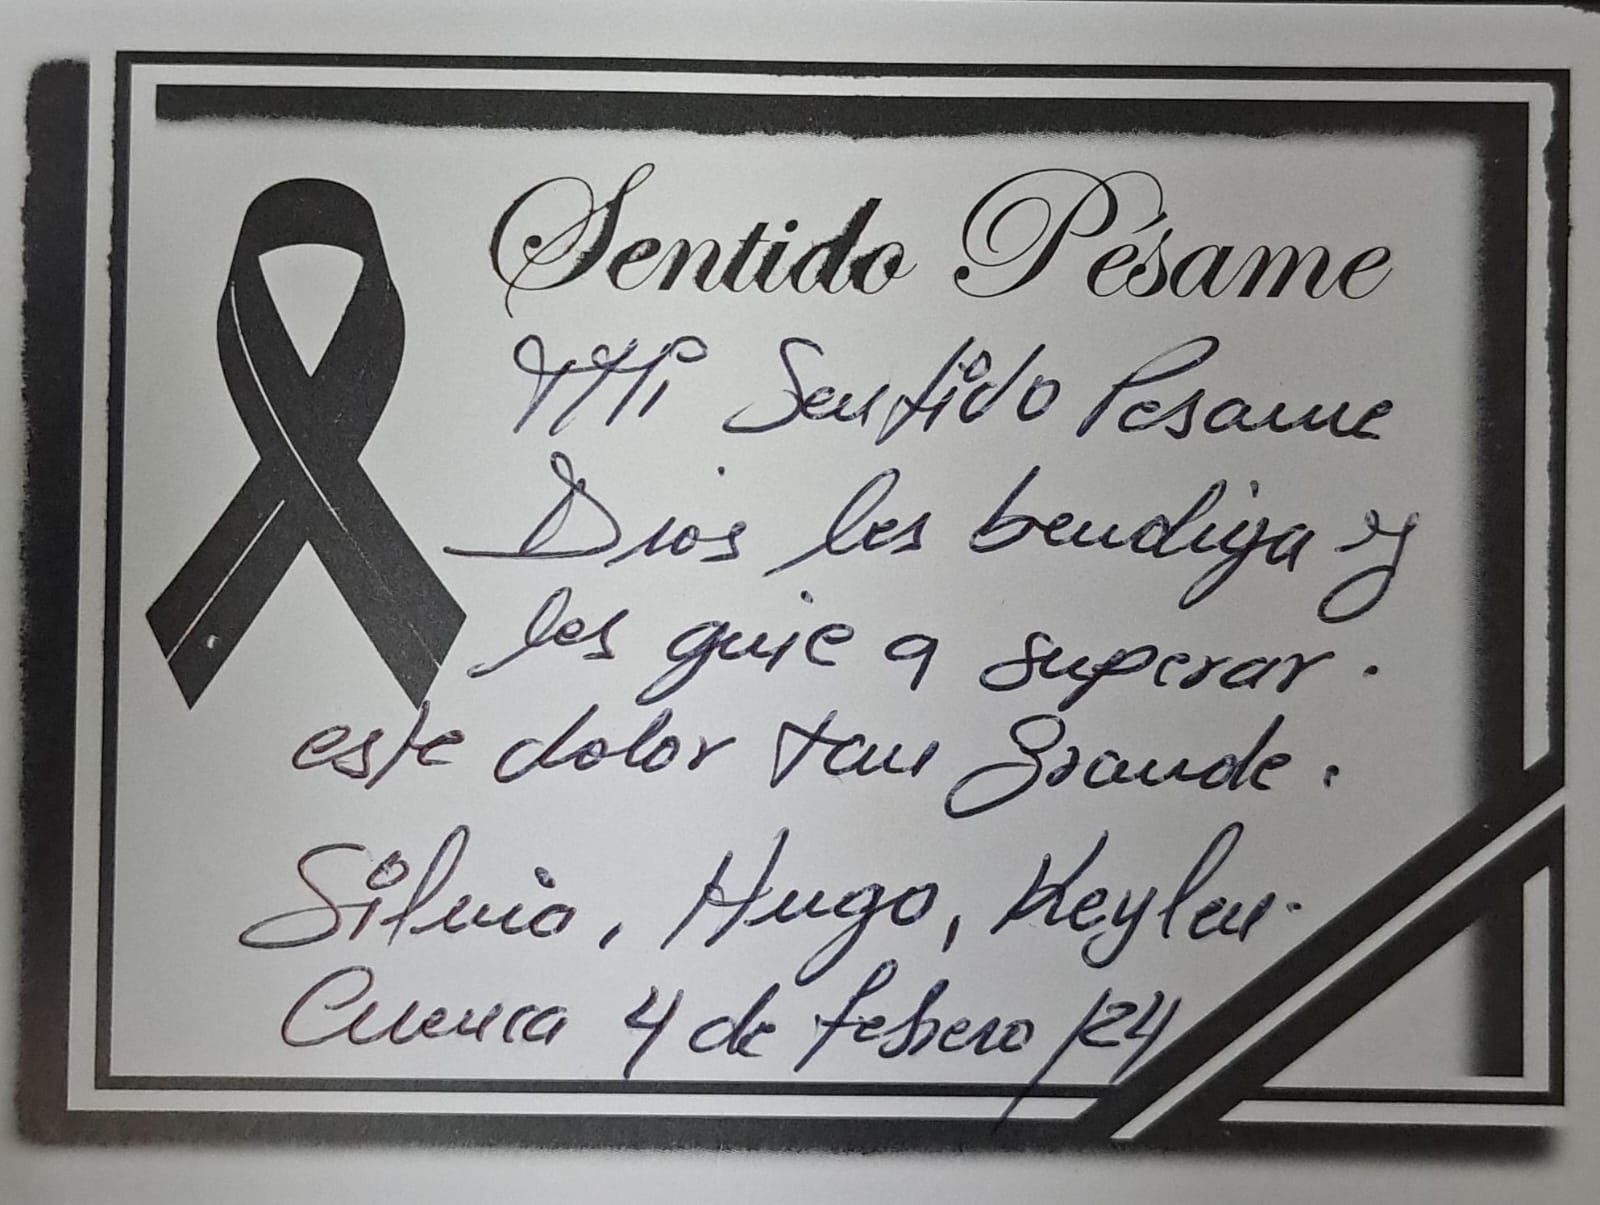 Sentido Pésame
Mi Sentido Pesame
Dios les bendiga y
les guie a superar.
este dolor tan grande.
Silvia, Hugo, Keylen.
Cuenca 4 de febrero /24